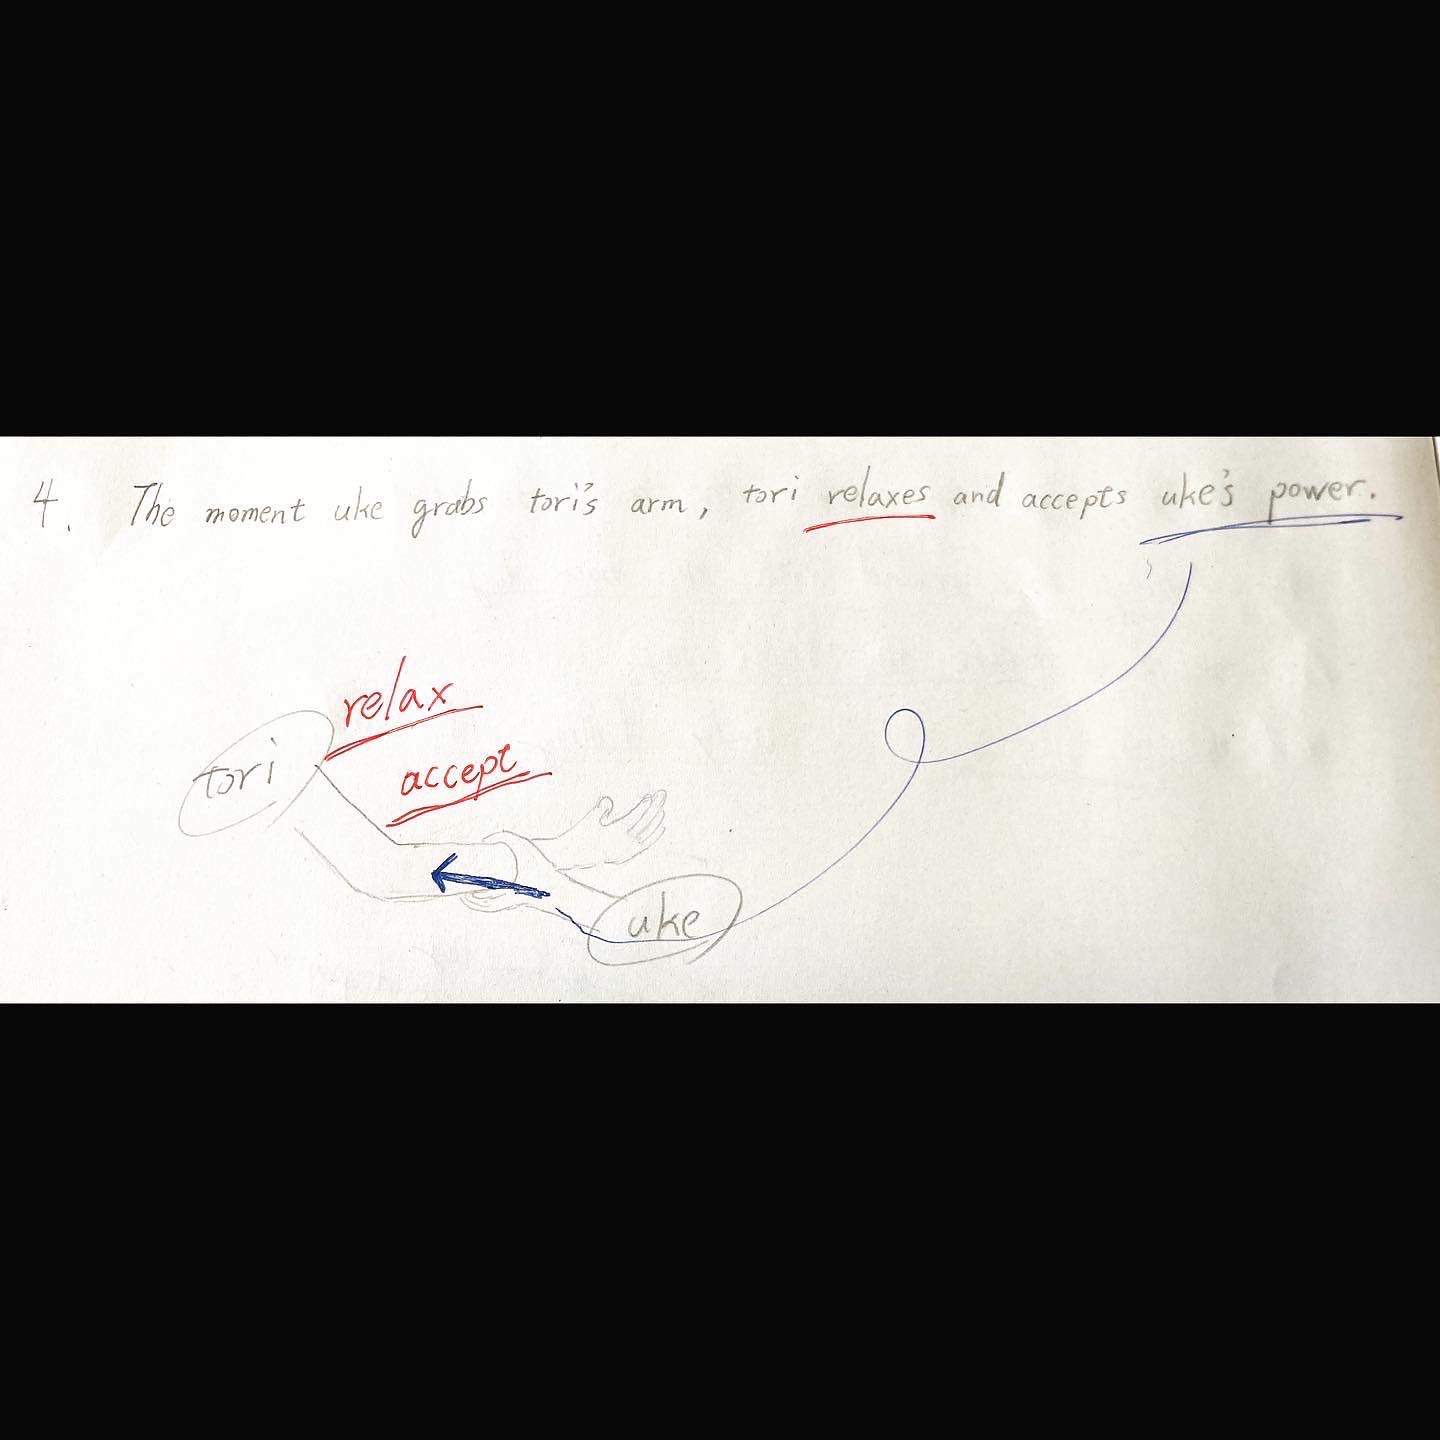 4. The moment uke grabs tori's arm, tori relaxes and accepts uke's power.
relax
tori
accept
uke